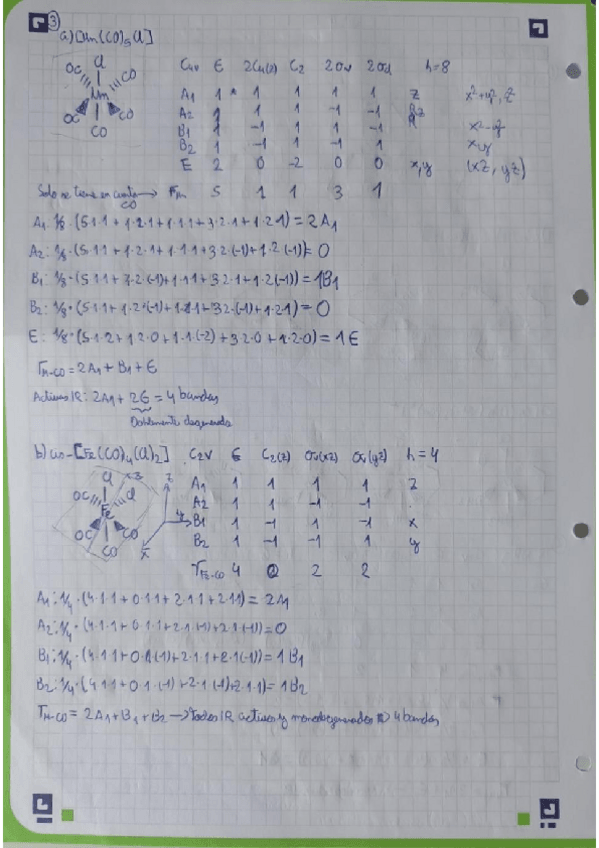 3
a) [Mn(CO)5Cl]
Cl
OC CO
Mn
OC CO
CO
C4v E 2C4(z) C2 2σv 2σd h=8
A1 1 1 1 1 1 z x²+y², z²
A2 1 1 1 -1 -1 Rz
B1 1 -1 1 1 -1 x²-y²
B2 1 -1 1 -1 1 xy
E 2 0 -2 0 0 x,y (xz, yz)
Solo se tiene en cuenta CO → 5 1 1 3 1
A1: 1/8·(5·1·1+1·2·1+1·1·1+3·2·1+1·2·1)=2A1
A2: 1/8·(5·1·1+1·2·1+1·1·1+3·2·(-1)+1·2·(-1))=0
B1: 1/8·(5·1·1+1·2·(-1)+1·1·1+3·2·1+1·2·(-1))=1B1
B2: 1/8·(5·1·1+1·2·(-1)+1·1·1+3·2·(-1)+1·2·1)=0
E: 1/8·(5·1·2+1·2·0+1·1·(-2)+3·2·0+1·2·0)=1E
ΓM-CO=2A1+B1+E
Activas IR: 2A1+2E=4 bandas
Doblemente degenerada
b) cis-[Fe(CO)4(Cl)2] C2v E C2(z) σv(xz) σv(yz) h=4
Cl
OC Cl
Fe
OC CO
CO
z
y
x
A1 1 1 1 1 z
A2 1 1 -1 -1
B1 1 -1 1 -1 x
B2 1 -1 -1 1 y
ΓFe-CO 4 0 2 2
A1: 1/4·(4·1·1+0·1·1+2·1·1+2·1·1)=2A1
A2: 1/4·(4·1·1+0·1·1+2·1·(-1)+2·1·(-1))=0
B1: 1/4·(4·1·1+0·1·(-1)+2·1·1+2·1·(-1))=1B1
B2: 1/4·(4·1·1+0·1·(-1)+2·1·(-1)+2·1·1)=1B2
ΓM-CO=2A1+B1+B2 → todos IR activos y monodegenerados ⇒ 4 bandas